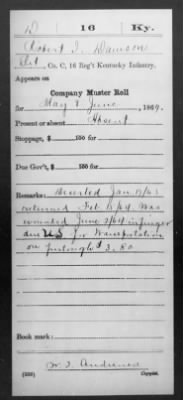 D 16 Ky.
Robert T. Dawson
Pvt, Co. C, 16 Reg't Kentucky Infantry.
Appears on
Company Muster Roll
for May & June, 1864.
Present or absent Absent
Stoppage, $ 100 for
Due Gov't, $ 100 for
Remarks: Deserted Jan 19/63
returned Feb 15/64 Was
wounded June 2/64 in finger
due U.S. for transportation
on furlough $3.80
Book mark:
W. T. Andrews
(358) Copyist.